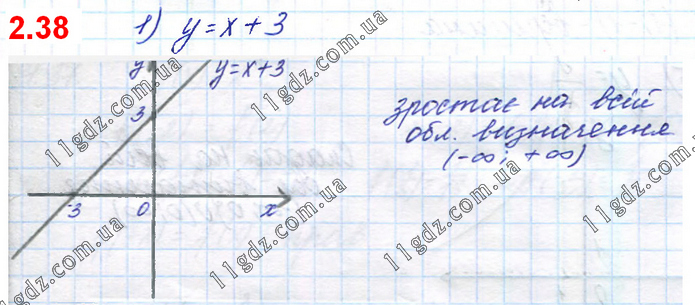 2.38
1) y = x + 3
y
y = x + 3
3
-3
0
x
зростає на всій
обл. визначення
(-∞; +∞)
11gdz.com.ua
11gdz.com.ua
11gdz.com.ua
11gdz.com.ua
11gdz.com.ua
11gdz.com.ua
11gdz.com.ua